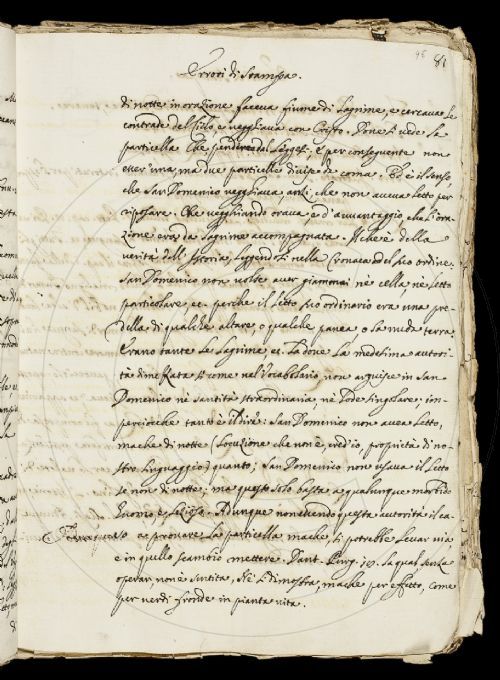 46 81
Errori di Stampa.
di notte in orazione faceva fiume di lagrime, e cercava le
contrade del Cielo e vegghiava con Cristo. Dove si vede la
particella Che pendere dal leggesi; e per conseguente non
esser una, ma due particelle divise de coma. Ed è il senso,
che San Domenico vegghiava, anzi, che non aveva letto per
riposare. Che vegghiando orava, e d'avvantaggio, che l'ora-
zione era da lagrime accompagnata. Il che è della
verità dell'Istoria, leggendosi nella Cronaca del suo ordine.
San Domenico non volse aver giammai nè cella, nè letto
particolare ec. perche il letto suo ordinario era una pre-
della di qualche altare, o qualche panca, o la nuda terra
Erano tante le lagrime ec. Ladove la medesima autori-
tà dimezzata si come nel Vocabolario non arguisce in San
Domenico nè santità straordinaria, nè lode singolare, im-
perciocche tanto è il dire: San Domenico non avea letto,
mache di notte (locuzione che non è, cred'io, proprietà di no-
stro linguaggio) quanto; San Domenico non usava il letto
se non di notte: ma questo solo basta a qualunque morbido
huomo, e Adunque non essendo questa autorità il ca-
a provare la particella mache, si potrebbe levar via,
e in quello scambio mettere. Dant. Purg. la qual senza
operar non è sentita, Nè si dimostra, mache per effetto, come
per verdi fronde in pianta vita.